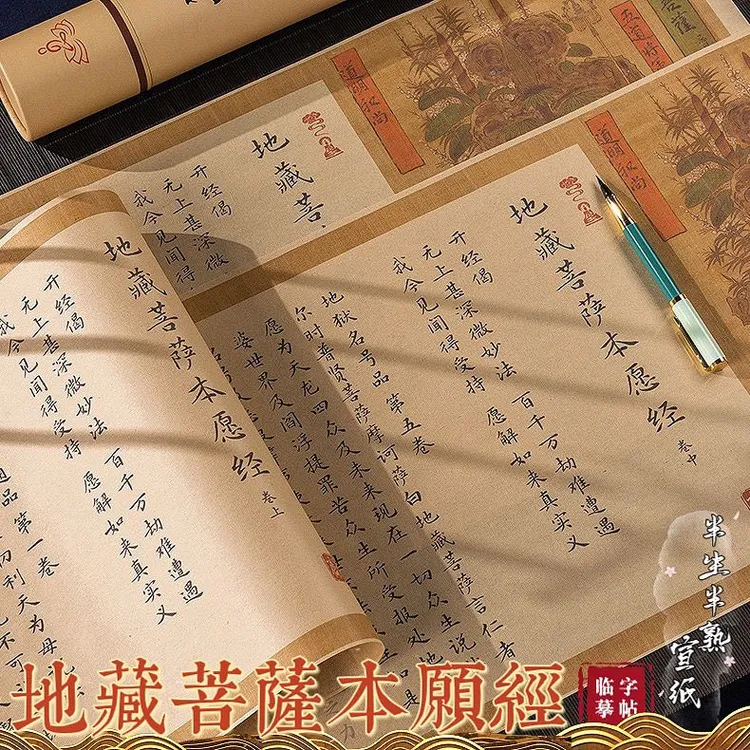 五道将军
道明和尚
道明和尚
地藏菩
开经偈
无上甚深微
我今见闻得
地藏菩萨本愿经 卷中
开经偈
无上甚深微妙法 百千万劫难遭遇
我今见闻得受持 愿解如来真实义
地獄名号品第五卷
尔时普贤菩萨摩诃萨白地藏菩萨言仁者
愿为天龙四众及未来现在一切众生说
婆世界及阎浮提罪苦众生所受报处地
地藏菩萨本愿经 卷上
开经偈
无上甚深微妙法 百千万劫难遭遇
我今见闻得受持 愿解如来真实义
通品第一卷
切利天为母
半生半熟
宣纸
地藏菩薩本願經
临摹
字帖